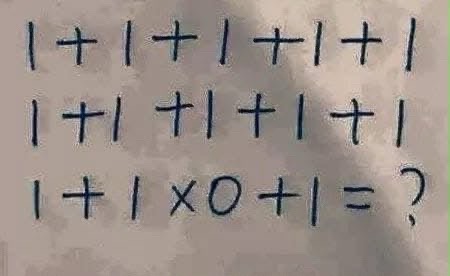 1+1+1+1+1
1+1+1+1+1
1+1×0+1=?